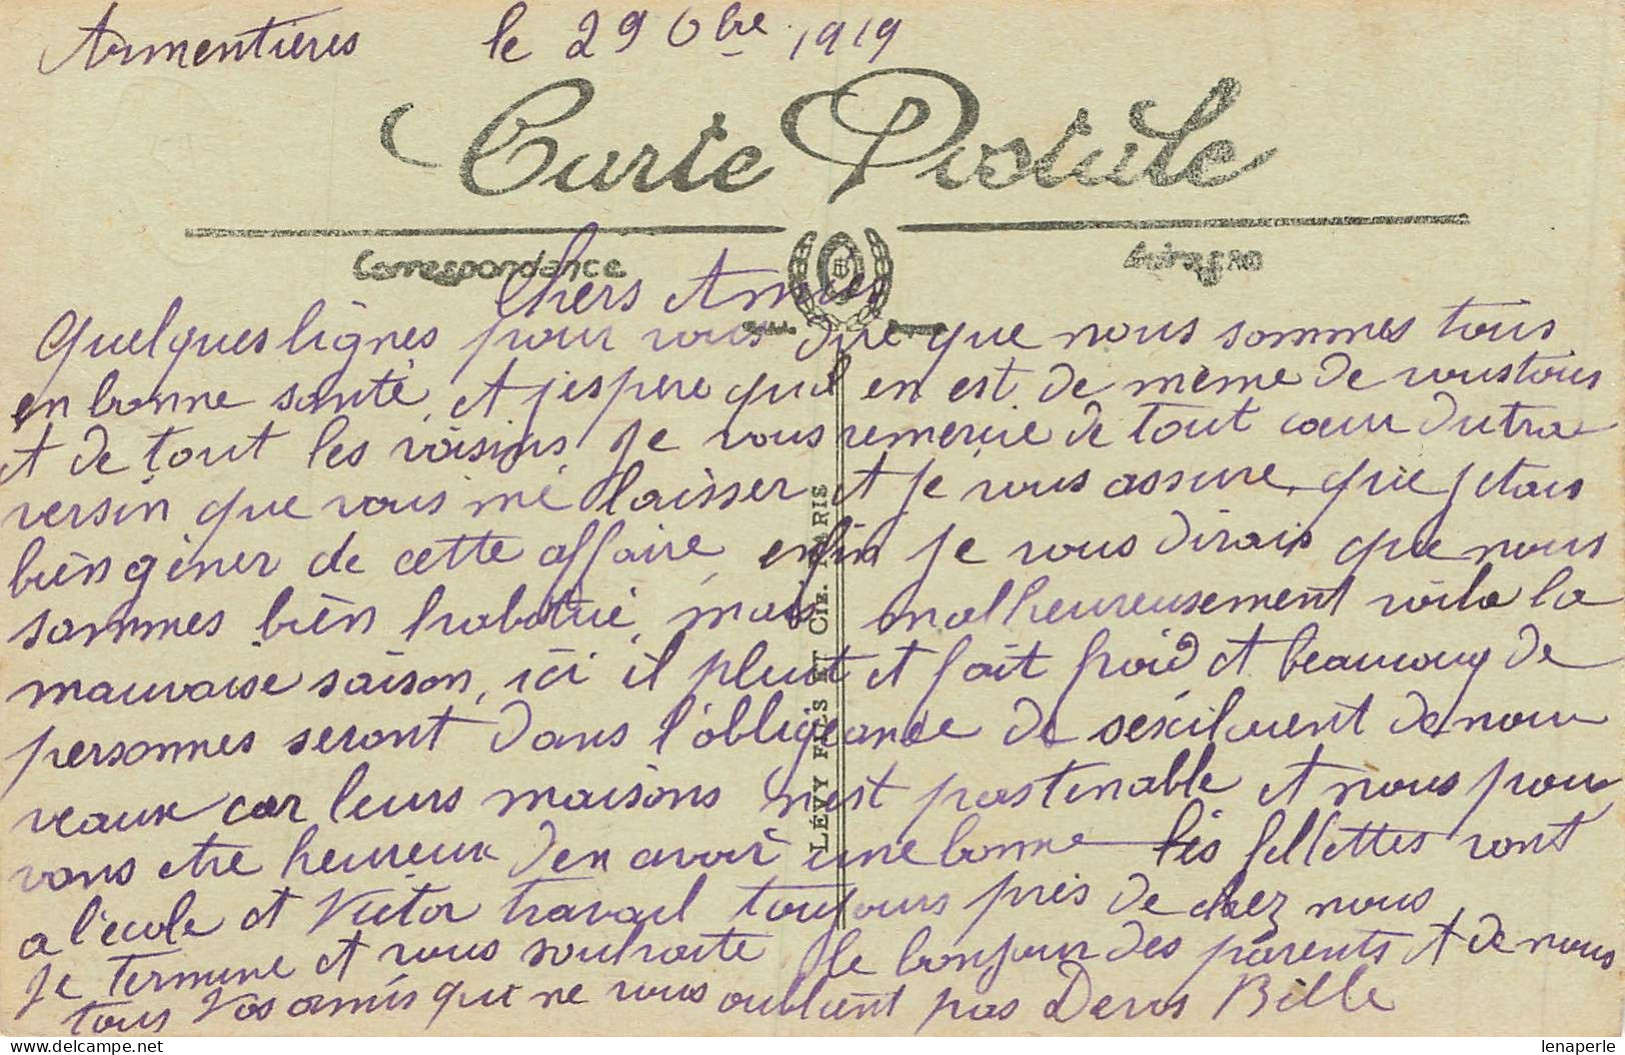 Armentières le 29 Obre 1919
Carte Postale
Correspondance
Chers Amies
Quelques lignes pour vous dire que nous sommes tous
en bonne santé, et jespere quil en est de même de voustous
et de tout les voisins, je vous remercie de tout cœur du tra
versin que vous mé laisser et je vous assure que jetais
bien gèner de cette affaire, enfin je vous dirais que nous
sommes bièn habitué, mais malheureusement voila la
mauvaise saison, ici il pleut et fait froid et beaucoup de
personnes seront dans l'obligeance de séxiluent de nou
veaux car leurs maisons n'est pastenable et nous pou
vons etre heureux den avoir une bonne les fillettes vont
a l'école et Victor travail toujours près de chez nous
Je termine et vous souhaite le bonjour des parents et de nous
tous Vos amis qui ne vous oublient pas Bille
LÉVY FILS ET CIE. PARIS
lenaperle